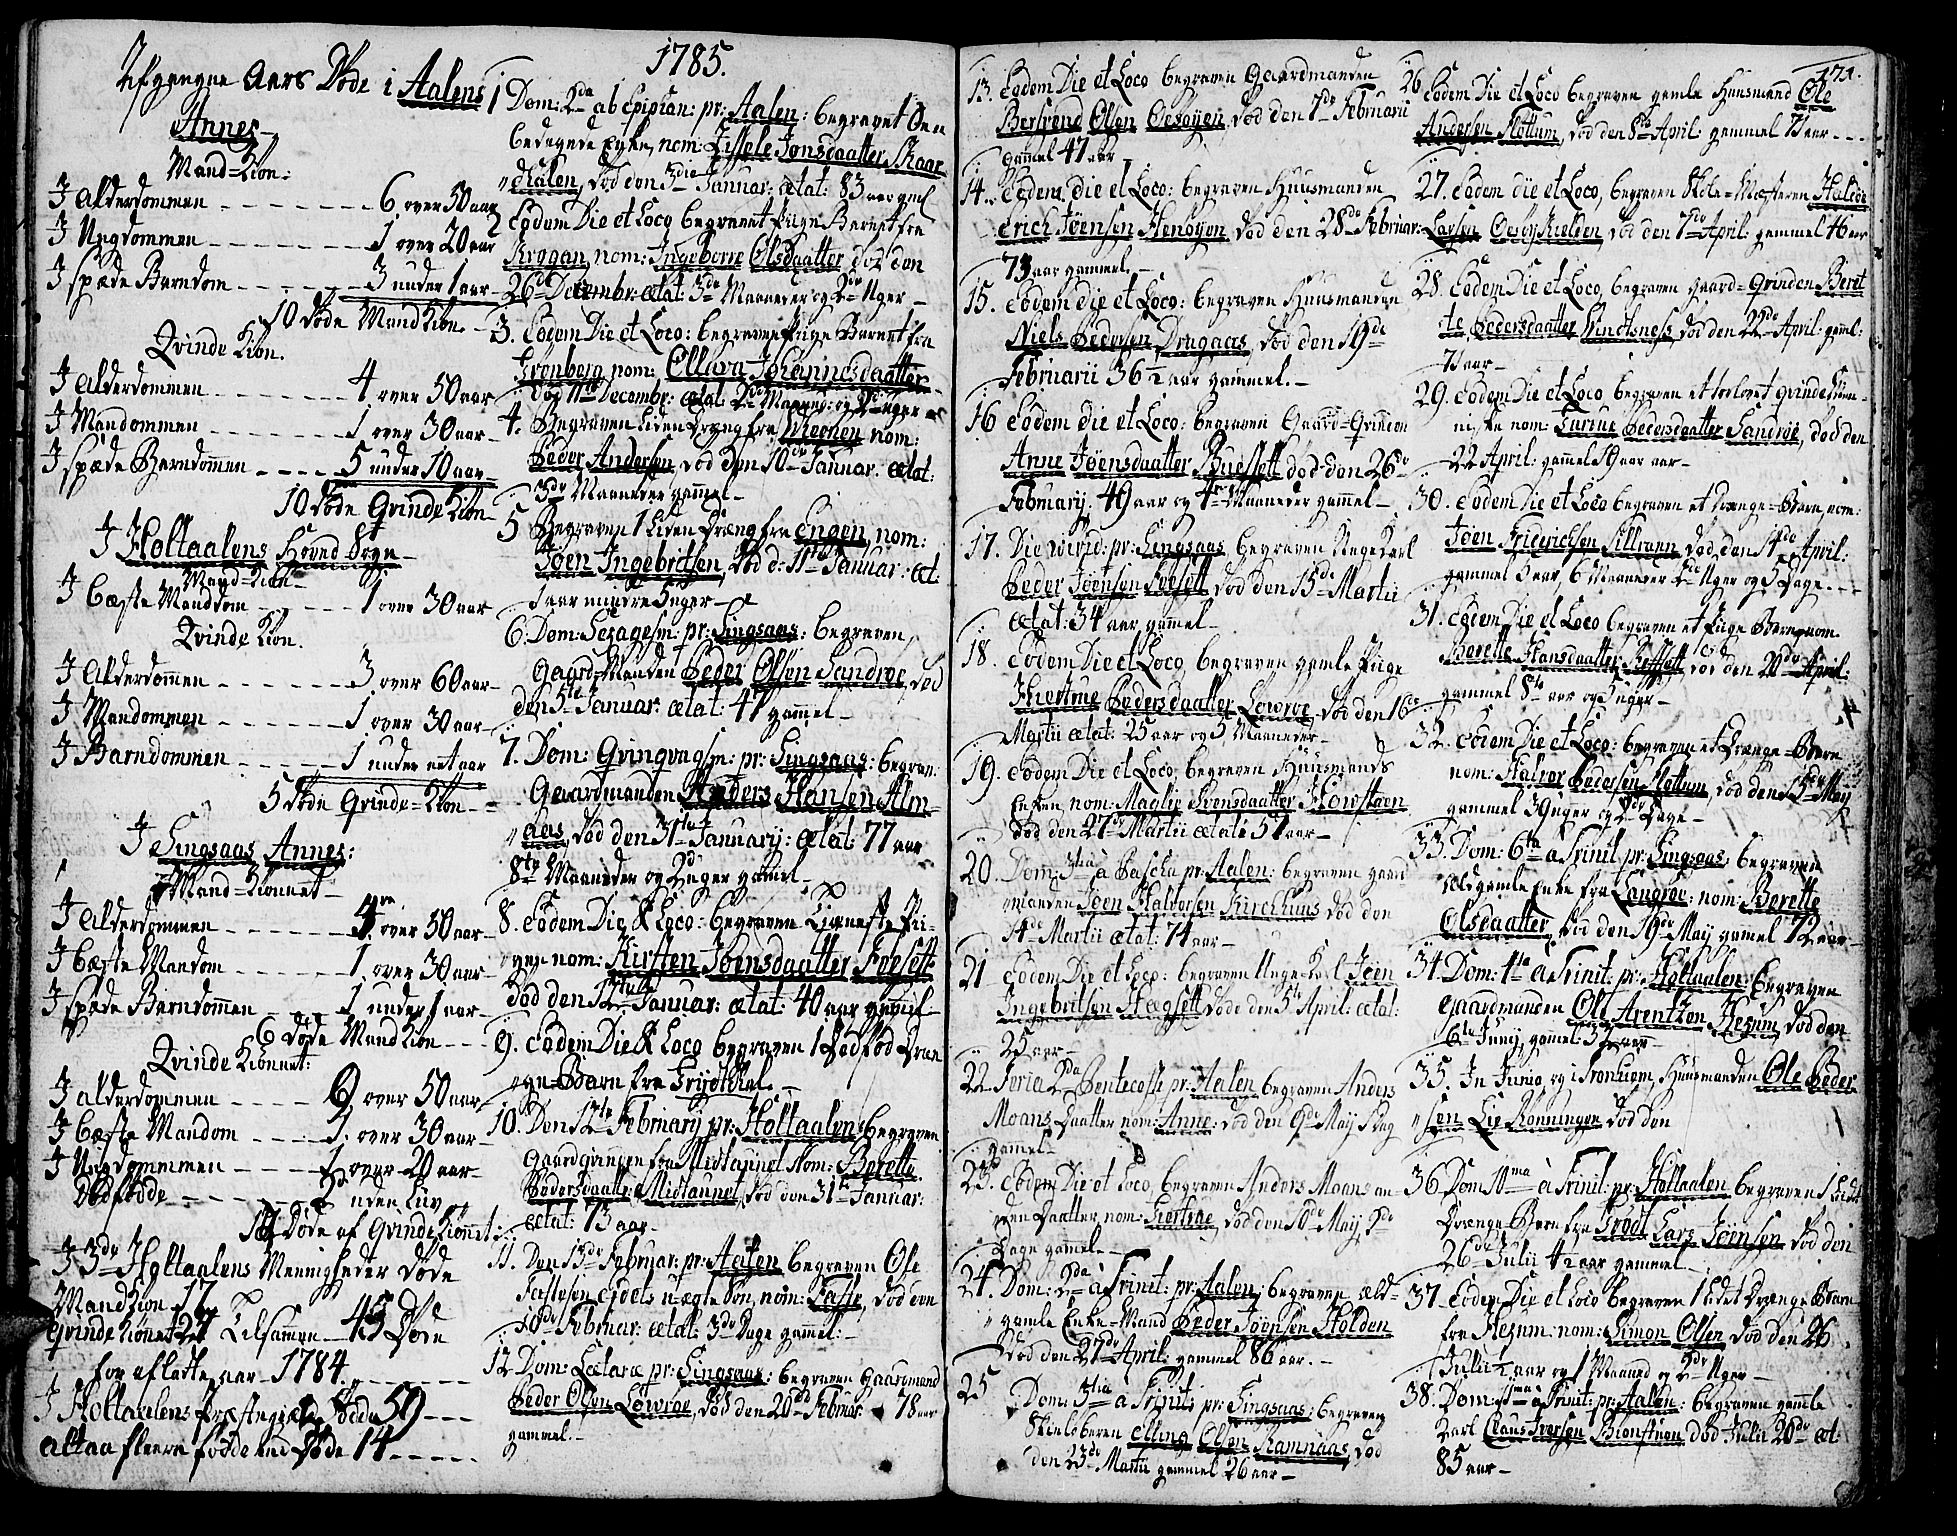 1785.
Afgangne Aars Døde i Aalens
Annex
Mand=Kion:
J Alderdommen - - - 6 over 50 aar
J Ungdommen - - - 1 over 20 aar
J spæde Barndom - - - 3 under 1 aar
10 døde Mand Kion
Qvinde Kion.
J Alderdommen - - - 4 over 50 aar
J Mandommen - - - 1 over 30 aar
J spæde Barndommen - - - 5 under 10 aar
10 døde Qvinde Kion
J Holtaalens Hoved Sogn
Mand=Kion
J beste Manddom - - - 1 over 30 aar
Qvinde Kion.
J Alderdommen - - - 3 over 60 aar
J Mandommen - - - 1 over 30 aar
J Barndommen - - - 1 under eet aar
5 døde Qvinde=Kion
J Singsaas Annex:
Mand=Kionnet
J Alderdommen - - - 4 over 50 aar
J beste Mandom - - - 1 over 30 aar
J spæde Barndommen - - - 1 under 1 aar
6 døde Mand Kion
Qvinde Kionnet:
J alderdommen - - - 6 over 50 aar
J beste Mandom - - - 1 over 30 aar
J Ungdommmen - - - 1 over 20 aar
Dødfødde - - - 2 uden Liv
Døde af Qvinde Kionnet
J 3de Holtaalens Meenigheder døde
Mand Kion 17
Qvinde Kionnet Tilsammen Døde
for aflagte aar 1784.
J Holtaalens Præstegield fødde 59
altsaa fleere fødde end Døde 14
1 Dom: 2da ab Epiphan: pr: Aalen: begravet Den
bedagede Enke, nom: Zissele Jonsdaatter Skaar
dhalen, død den 3die Januar: ætat: 83 aar gml
2 Eodem Die et Loco begravet Pige Barnet fra
Krogan, nom: Ingeborre Olsdaatter død den
26de Decembr: ætat: 3de Maaneder og 2de Uger
3. Eodem Die et Loco: begraven Pige Barnet fra
Grønberg nom: Ellava Johannesdaatter
død 11te Decembr: ætat: 2de Maaned: og 2de uger
4. Begraven Liden Dreng fra Moenen nom:
Peder Andersen, død den 10de Januar: ætat:
3de Maaneder gammel
5 Begraven 1 Liden Dræng fra Engen, nom:
Joen Ingebritsen, død d: 11te Januar: æt:
1 aar mindre 5 uger
6. Dom: Sexagesm: pr: Singsaas: begraven,
Gaard=Manden Peder Olsen Sandrøe, død
den 5te Januar ætat: 47 gammel
7. Dom: Qvinqvagsm: pr: Singsaas: begrav:
Gaardmanden Anders Hansen Alm-
aas, død den 31te Januarij: ætat: 77 aar
8te Maaneder og 2 uger gamel
8. Eodem Die & Loco: begraven Pi-
gen nom: Kirsten Jøensdaatter Foesett
død den 12te Januar: ætat: 40 aar gamel
9. Eodem Die & Loco begraven 1 Dødfød Dræn
ge Barn fra
10. Den 12te Februarij pr: Holtaalen begraven
Gaardqvinden fra Midtaunet Nom: Berette
Pedersdaatter Midtaunet, død den 31te Januar:
ætat: 73 aar
11. Den 13de Februar: pr: Aalen begraven Ole
uægte Søn, nom: død den
10de Februar: ætat: 3de Dage gammel:
12 Dom: Lætaræ pr: Singsaas: begraven Gaardmand
Peder Olsen Løwrøe, død den 20de Februar: 78 aar
gammel.
13. Eodem Die et Loco begraven Gaardmanden
Bersvend Olsen Oesøyen død den 7de Februarii
gammel 47 aar
14. Eodem Die et Loco: begraven Huusmanden
Erich Jøensen Henøyen død den 28de Februar:
73 aar gammel,
15. Eodem Die et Loco: begraven Huusmanden
Niels Pedersen Drugaas, død den 19de
Februarii 36 ½ aar gammel.
16 Eodem Die et Loco: begraven Gaard=Qvinden
Anne Jøensdaatter Buesett død den 26de
Februarij. 49 aar og 4re Maaneder gammel
17. Die pr: Singsaas begraven Unge Karl
Peder Jøensen Foesett død den 15de Martii
ætat: 34 aar gammel
18. Eodem Die et Loco begraven gamle Pige
Kiertrue Pedersdaatter Løwrøe, død den 16de
Martii ætat: 25 aar og 5 Maaneder
19. Eodem Die et Loco, begraven Huusmands
Enken nom: Maglie Svensdaatter
død den 27de Martii ætat: 57 aar
20. Dom: 3tia à Pascha pr: Aalen: begraven gaard
manden Joen Halvorsen Kirchhuus død den
14de Martii ætat: 74 aar
21 Eodem Die et Loco: begraven Unge Karl Joen
Ingebritsen Hægsett døde den 5te April: ætat:
25 aar
22. Feria 2da Pentecoste pr: Aalen begraven Anders
Moans Daatter nom: Anne: død den 9de May 1 Dag
gammel
23. Eodem Die et Loco, begraven Anders Moans an
den Daatter, nom: Giertrue, død den 10de Maij, 2de
Dage gamel
24. Dom: 2da à Trinit: pr: Aalen: begraven æld-
gamle Enke=Mand Peder Jøensen Holden
død den 27de April: gammel 86 aar.
25 Dom: 3tia a Trinit: pr: Singsaas: begraven
Elling Olsen Ramnaas, død
den 23de Martii gammel 26 aar
171.
26 Eodem Die et Loco begraven gamle Huusmand Ole
Andersen Flottum, død den 8de April: gammel 71 aar
27. Eodem die et Loco, begraven Skole=Mesteren
Larsen død den 7de April: gammel 46 aar
28. Eodem Die et Loco, begraven Gaard=Qvinden Beret
te, Pedersdaatter død den 22de April: gaml:
71 aar
29. Eodem Die et Loco, begraven et forlovet qvinde Men-
niske nom: Gurine Pedersdaatter Sandrøe, død den
22 April: gammel 19 aar
30. Eodem Die et Loco begraven et Drænge=Barn, nom:
Jøen Friderichsen død, den 14de April:
gammel 3 aar, 6 Maaneder 2de Uger og 5 Dage
31. Eodem Die et Loco begraven et Pige Barn nom:
Berette Hansdaatter død den 20de April:
gammel 8te aar og 3 uger
32. Eodem Die et Loco: begraven et Drænge=Barn
nom: Halvor Pedersen Flottum, død den 15de Maij
gammel 39 uger og 2de Dage
33. Dom: 6ta à Trinit: pr: Singsaas, begraven
Oldgamle Enke fra Langrøe: nom: Berette
Olsdaatter, død den 19de May gamel 72 aar
34. Dom: 4ta à Trinit: pr: Holtaalen: begraven
Gaardmanden Ole Arentzon Hegum, død den
6te Junij, gamel: 32 aar
35. Jn Junio, og i Tronhiem, Huusmanden Ole Peder
sen Lie død den
36 Dom 10ma à Trinit: pr: Holtaalen begraven 1 Lidet
Drænge Barn fra Grødt Lars Jøensen død den
26de Julii ½ aar gammel
37. Eodem Die et Loco begraven 1 Lidet Drænge Barn
fra Hegum: nom: Simon Olsen død den 26
Julii ½ aar og 1 Maaned og 2de Uger
38. Dom: à Trinit: pr: Aalen: begraven gamle
Karl Claus Iversen død Julii 20de æt:
85 aar